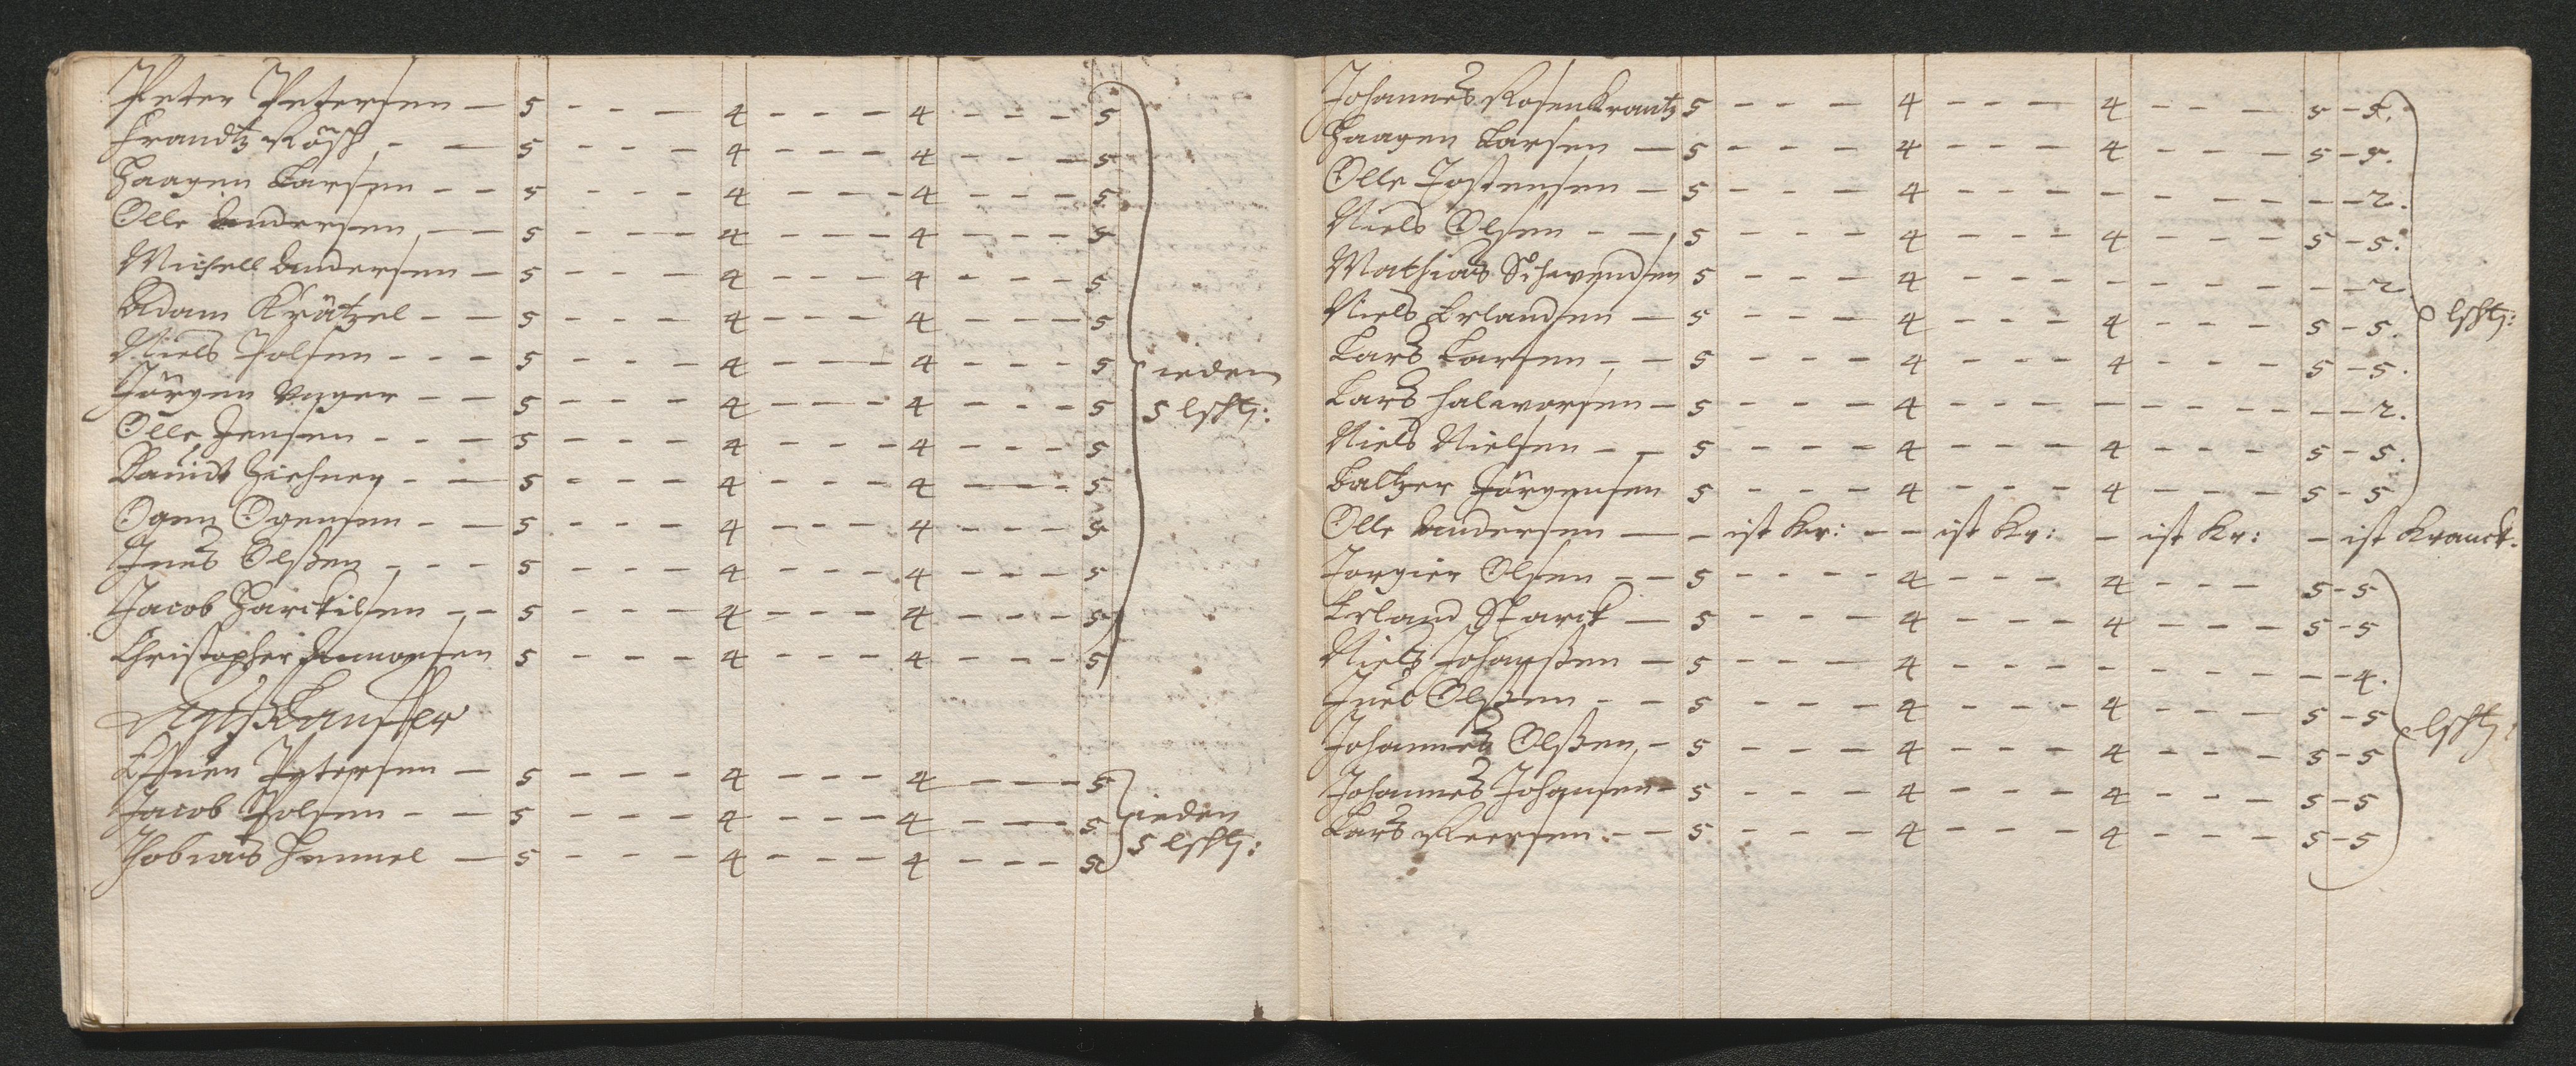 Peter Petersen — 5 - - - 4 - - - 4 - - - 5
Frandtz Rösch - — 5 - - - 4 - - - 4 - - - 5
Haagen Larsen - - 5 - - - 4 - - - 4 - - - 5
Olle Andersen — 5 - - - 4 - - - 4 - - - 5
Michell Andersen — 5 - - - 4 - - - 4 - - - 5
Adam Krätzel - - 5 - - - 4 - - - 4 - - - 5
Niels Polsen - - - 5 - - - 4 - - - 4 - - - 5
ieden
Jörgen Unger - - 5 - - - 4 - - - 4 - - - 5
5 lschtz:
Olle Jensen - - - 5 - - - 4 - - - 4 - - - 5
Dauidt Zichner - — 5 - - - 4 - - - 4 - - - 5
Ogen Ogensen - — 5 - - - 4 - - - 4 - - - 5
Jnes Olßen - - - 5 - - - 4 - - - 4 - - - 5
Jacob Harckilsen - - 5 - - - 4 - - - 4 - - - 5
Christopher 5 - - - 4 - - - 4 - - - 5
Petersen — 5 - - - 4 - - - 4 - - - 5
Jacob Polsen - - 5 - - - 4 - - - 4 - - - 5
ieden
Tobias Hemmel — 5 - - - 4 - - - 4 - - - 5
5 lschtz:
Johannes Rosenkrantz 5 - - - 4 - - - 4 - - - 5 - 5.
Haagen Larsen — 5 - - - 4 - - - 4 - - - 5 - 5.
Olle Jostensen — 5 - - - 4 - - - - - - - - - 2.
Niels Olsen - - 5 - - - 4 - - - 4 - - - 5 - 5.
Mathias Schwendsen 5 - - - 4 - - - - - - - - - 2
Niels Erlandsen — 5 - - - 4 - - - 4 - - - 5 - 5.
lschtz:
Lars Larsen - - 5 - - - 4 - - - 4 - - - 5 - 5.
Lars Halworsen — 5 - - - 4 - - - - - - - - - 2.
Niels Nielsen - - 5 - - - 4 - - - 4 - - - 5 - 5.
Baltzer Jörgensen 5 - - - 4 - - - 4 - - - 5 - 5
Olle Andersen — - ist Kr: - - ist Kr: - ist Kr: - ist Kranck.
Torgier Olsen - - 5 - - - 4 - - - 4 - - - 5 - 5
Erland Starck — 5 - - - 4 - - - 4 - - - 5 - 5
Nielß Johanßen — 5 - - - 4 - - - - - - - - - 4.
Jnes Olßen - - 5 - - - 4 - - - 4 - - - 5 - 5
lschtz:
Johannes Olßen - 5 - - - 4 - - - 4 - - - 5 - 5
Johannes Johansen - 5 - - - 4 - - - 4 - - - 5 - 5
Lars Peersen - - 5 - - - 4 - - - 4 - - - 5 - 5